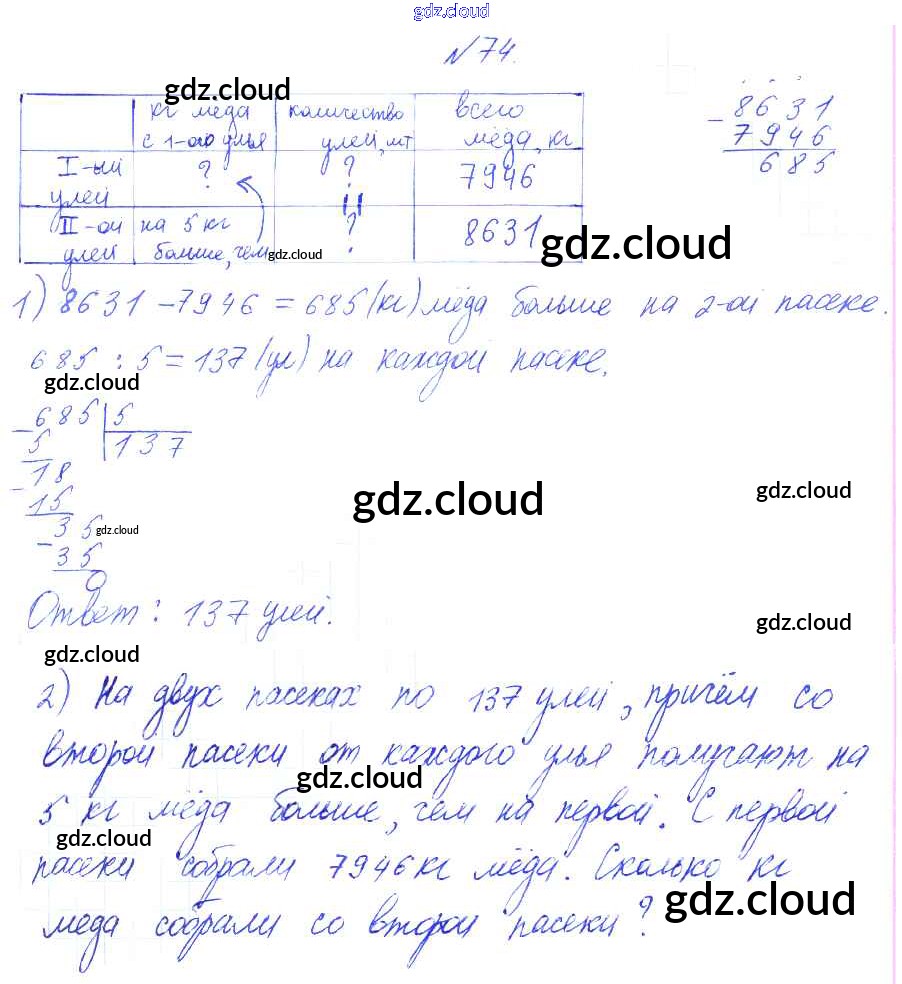 gdz.cloud
№74.
gdz.cloud
кг мёда количество всего
с 1-ого улья улей, шт мёда, кг
I-ый ? ? 7946
улей
II-ой на 5 кг ? 8631
улей больше, чем
gdz.cloud
gdz.cloud
- 8631
7946
685
1) 8631 - 7946 = 685 (кг) мёда больше на 2-ой пасеке.
685 : 5 = 137 (ул) на каждой пасеке.
gdz.cloud
- 685 | 5
5 137
- 18
15
35
gdz.cloud
- 35
0
gdz.cloud
gdz.cloud
Ответ: 137 улей.
gdz.cloud
gdz.cloud
2) На двух пасеках по 137 улей, причём со
второй пасеки от каждого улья получают на
gdz.cloud
5 кг мёда больше, чем на первой. С первой
gdz.cloud
пасеки собрали 7946 кг мёда. Сколько кг
gdz.cloud
меда собрали со второй пасеки?